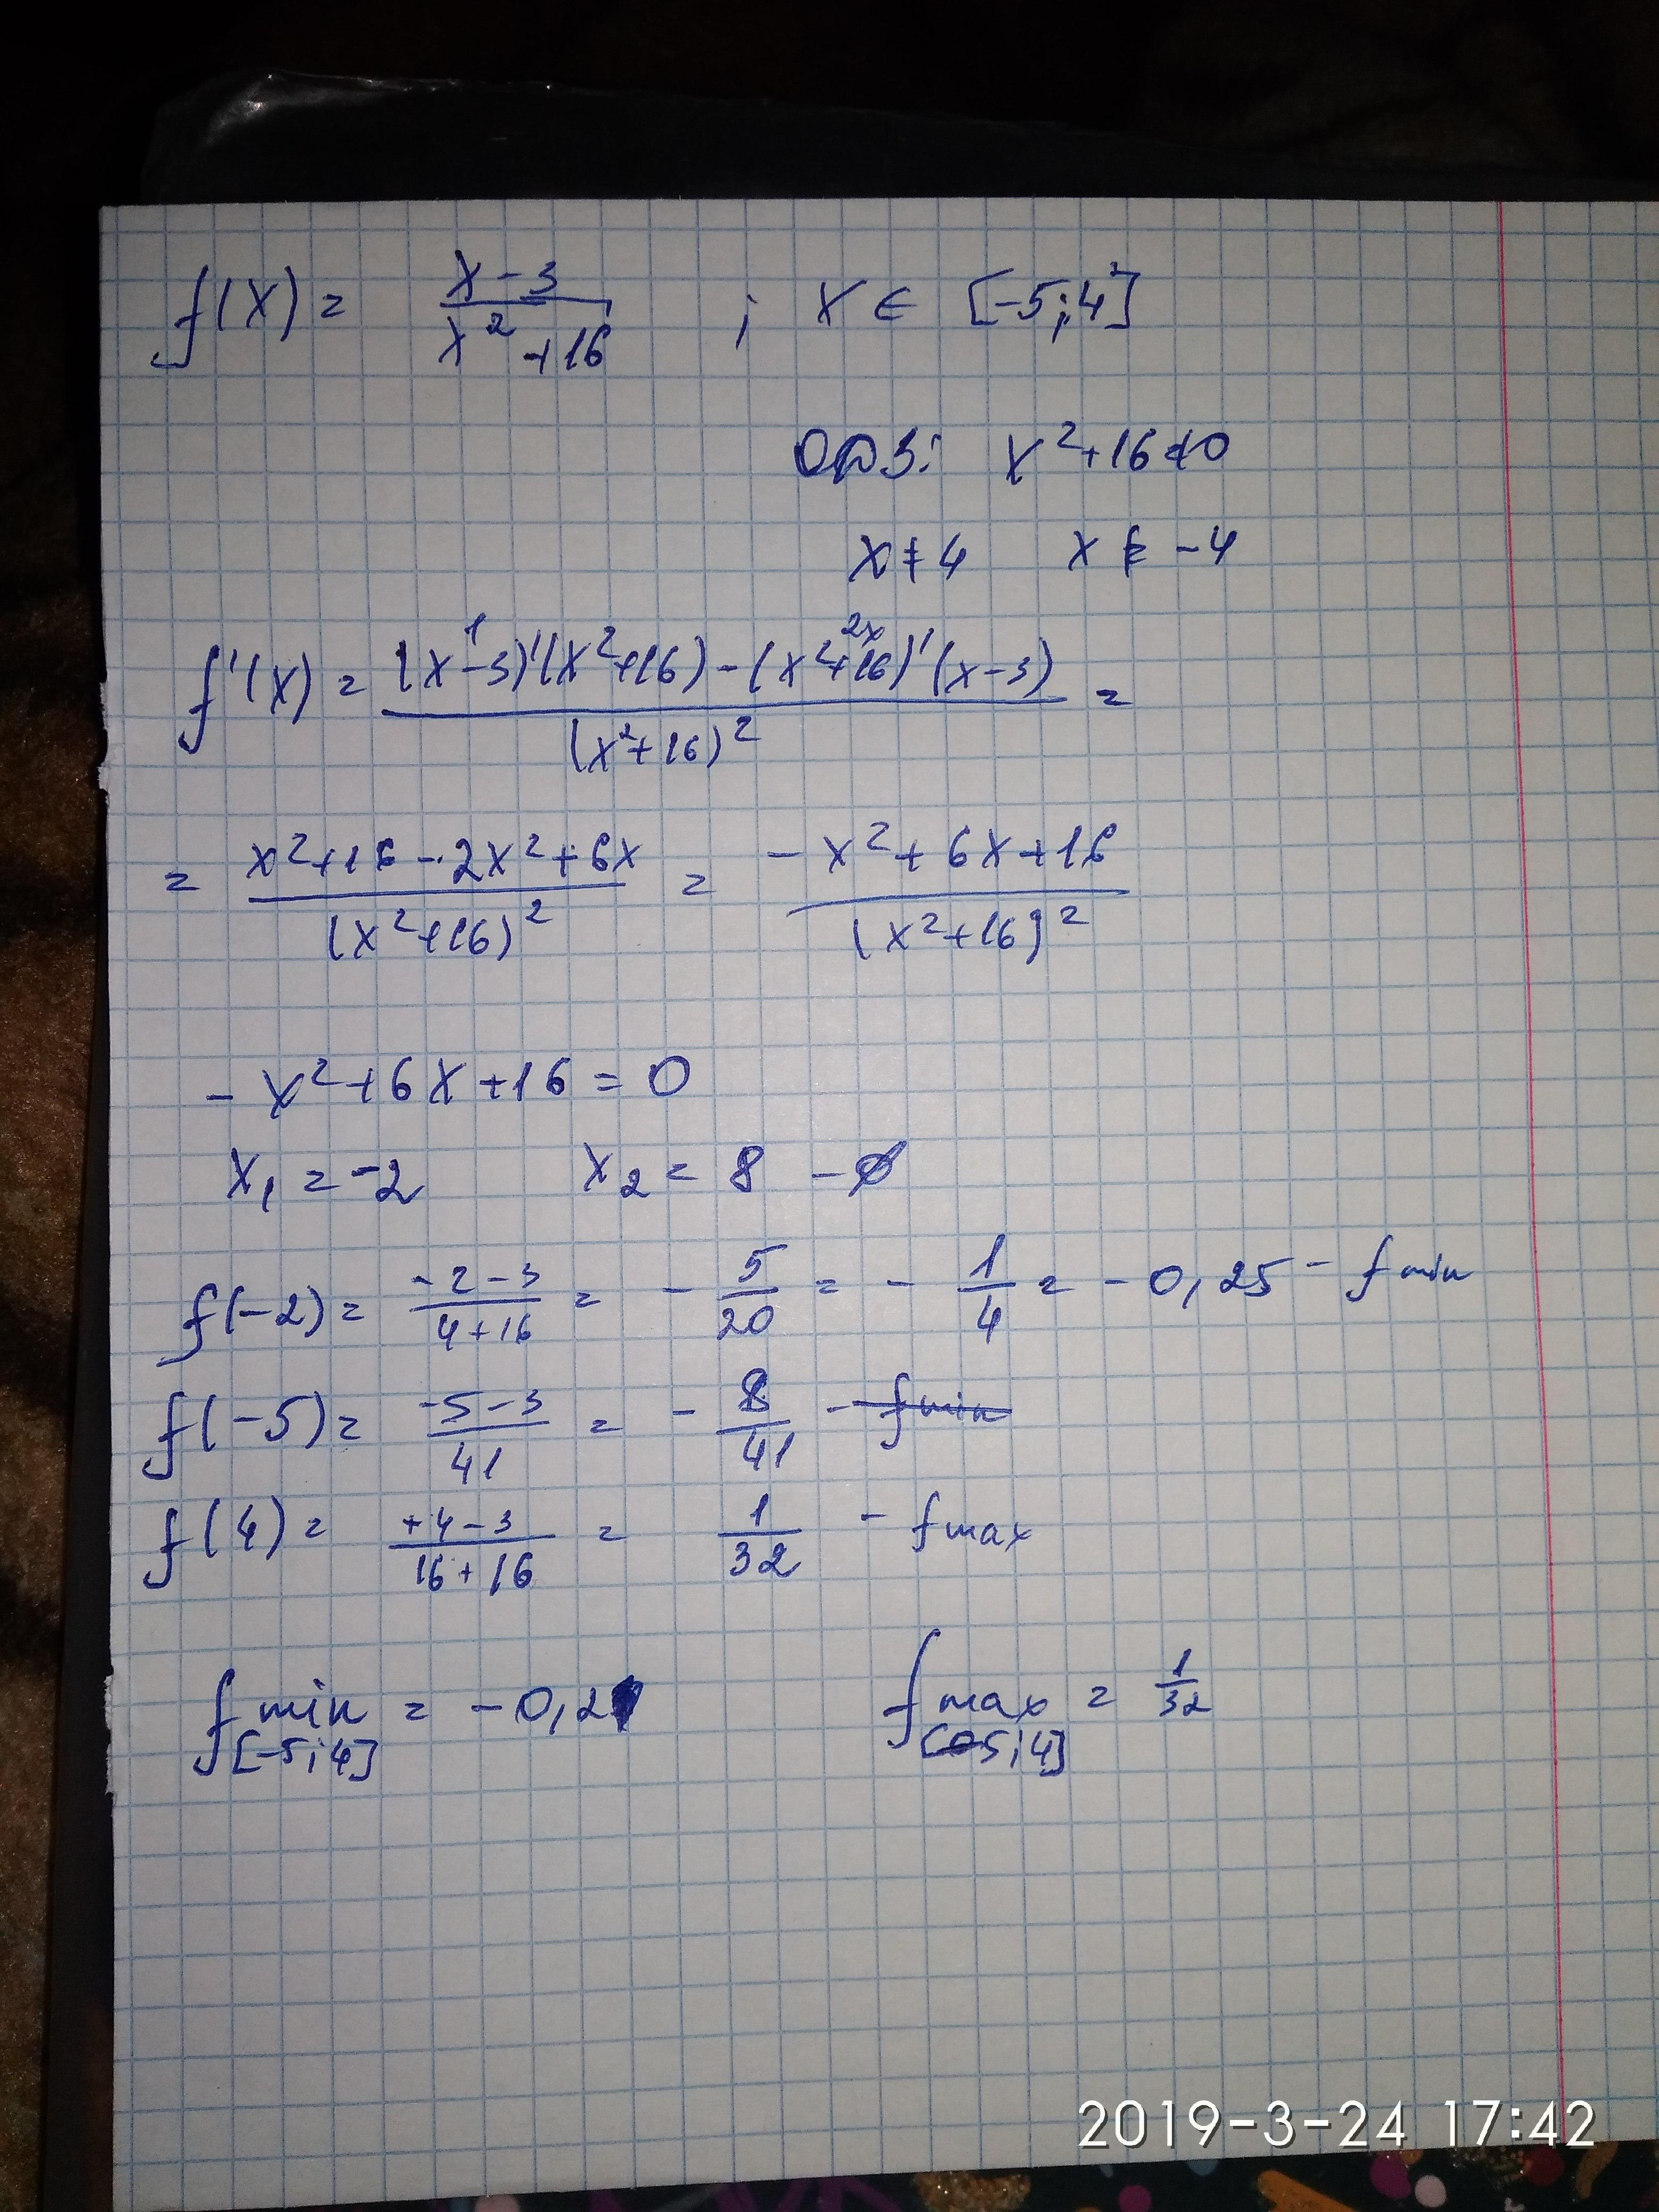 f(x) = (x-3)/(x²+16) ; x ∈ [-5;4]
ОДЗ: x²+16≠0
x≠4 x≠-4
f'(x) = ((x-3)'(x²+16)-(x²+16)'(x-3))/(x²+16)² =
1 2x
= (x²+16-2x²+6x)/(x²+16)² = (-x²+6x+16)/(x²+16)²
-x²+6x+16=0
x₁=-2 x₂=8 -∅
f(-2)= (-2-3)/(4+16) = -5/20 = -1/4 = -0,25 - fmin
f(-5)= (-5-3)/41 = -8/41 - fmin
f(4)= (+4-3)/(16+16) = 1/32 - fmax
f min = -0,2
[-5;4]
f max = 1/32
5;4]
2019-3-24 17:42